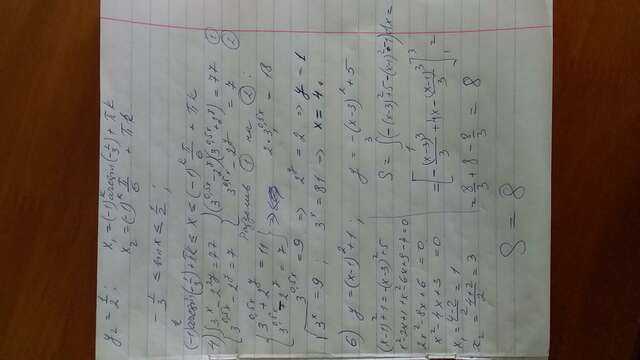 y₂ = 1/2 : x₁ = (-1)ᵏ arcsin(-1/3) + πk
x₂ = (-1)ᵏ π/6 + πk
-1/3 ≤ sin x ≤ 1/2 ;
(-1)ᵏ arcsin(-1/3) + πk ≤ x ≤ (-1)ᵏ π/6 + πk
{ 3ˣ - 2²ʸ = 77 { (3^0,5x - 2ʸ)(3^0,5x + 2ʸ) = 77 ①
{ 3^0,5x - 2ʸ = 7 { 3^0,5x - 2ʸ = 7 ②
Разделив ① на ②:
{ 3^0,5x + 2ʸ = 11 ⇒ 2·3^0,5x = 18
{ 3^0,5x - 2ʸ = 7
3^0,5x = 9 ⇒ 2ʸ = 2 ⇒ y = 1
√3ˣ = 9 ; 3ˣ = 81 ⇒ x = 4.
6) y = (x-1)² + 1 ; y = -(x-3)² + 5
(x-1)² + 1 = -(x-3)² + 5
x² - 2x + 1 + x² - 6x + 9 - 4 = 0
2x² - 8x + 6 = 0
x² - 4x + 3 = 0
x₁ = (4-2)/2 = 1
x₂ = (4+2)/2 = 3
S = ∫₁³ (-(x-3)² + 5 - (x-1)² - 1) dx =
= [-(x-3)³/3 + 4x - (x-1)³/3]₁³ =
= 8/3 + 8 - 8/3 = 8
S = 8